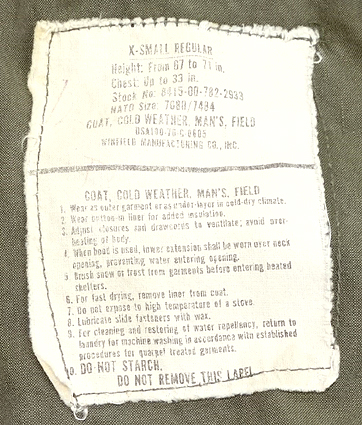 X-SMALL REGULAR
Height: From 67 to 71 in.
Chest: Up to 33 in.
Stock No: 8415-00-782-2933
NATO Size: 7080/7484
COAT, COLD WEATHER, MAN'S, FIELD
DSA100-76-C-0605
WINFIELD MANUFACTURING CO., INC.
COAT, COLD WEATHER, MAN'S, FIELD
1. Wear as outer garment or as under-layer in cold-dry climate.
2. Wear button-in liner for added insulation.
3. Adjust closures and drawcords to ventilate; avoid over-
heating of body.
4. When hood is used, lower extension shall be worn over neck
opening, preventing water entering opening.
5. Brush snow or frost from garments before entering heated
shelters.
6. For fast drying, remove liner from coat.
7. Do not expose to high temperature of a stove.
8. Lubricate slide fasteners with wax.
9. For cleaning and restoring of water repellency, return to
laundry for machine washing in accordance with established
procedures for quarpel treated garments.
10. DO NOT STARCH.
DO NOT REMOVE THIS LABEL